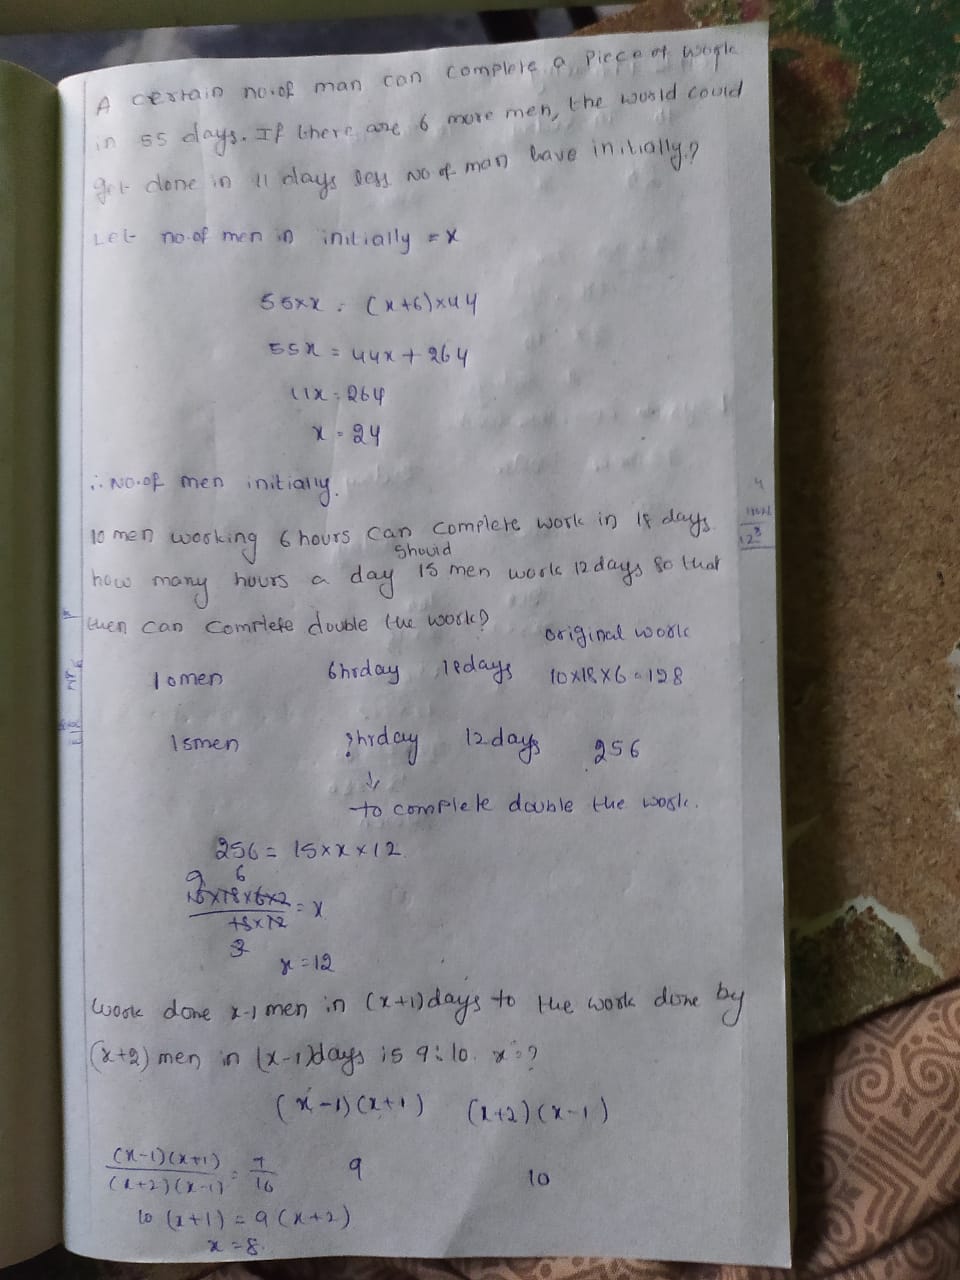 A certain no.of man can complete a piece of work
in 55 days. If there are 6 more men, the world could
get done in 11 days less No of man have initially?
Let no.of men in initially = x
55×x = (x+6)×44
55x = 44x + 264
11x = 264
x = 24
∴ No.of men initially.
10 men working 6 hours can complete work in 18 days
should
how many hours a day 15 men work 12 days so that
then can comrlete double the work?
original work
10men 6hrday 18days 10×18×6=128
15men ?hrday 12days 256
↓
to complete double the work.
256 = 15×x×12
9 6
10×18×6×2 = x
15×12
3
x = 12
work done x-1 men in (x+1) days to the work done by
(x+2) men in (x-1) days is 9:10. x=?
(x-1)(x+1) (x+2)(x-1)
(x-1)(x+1) = 9 9
(x+2)(x-1) 10 10
10 (x+1) = 9 (x+2)
x = 8.